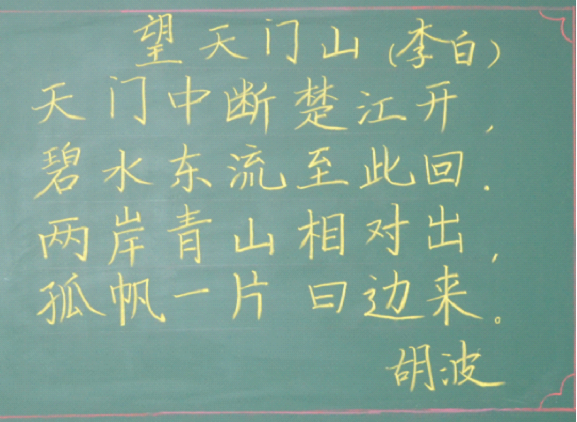 望天门山(李白)
天门中断楚江开,
碧水东流至此回.
两岸青山相对出,
孤帆一片日边来。
胡波